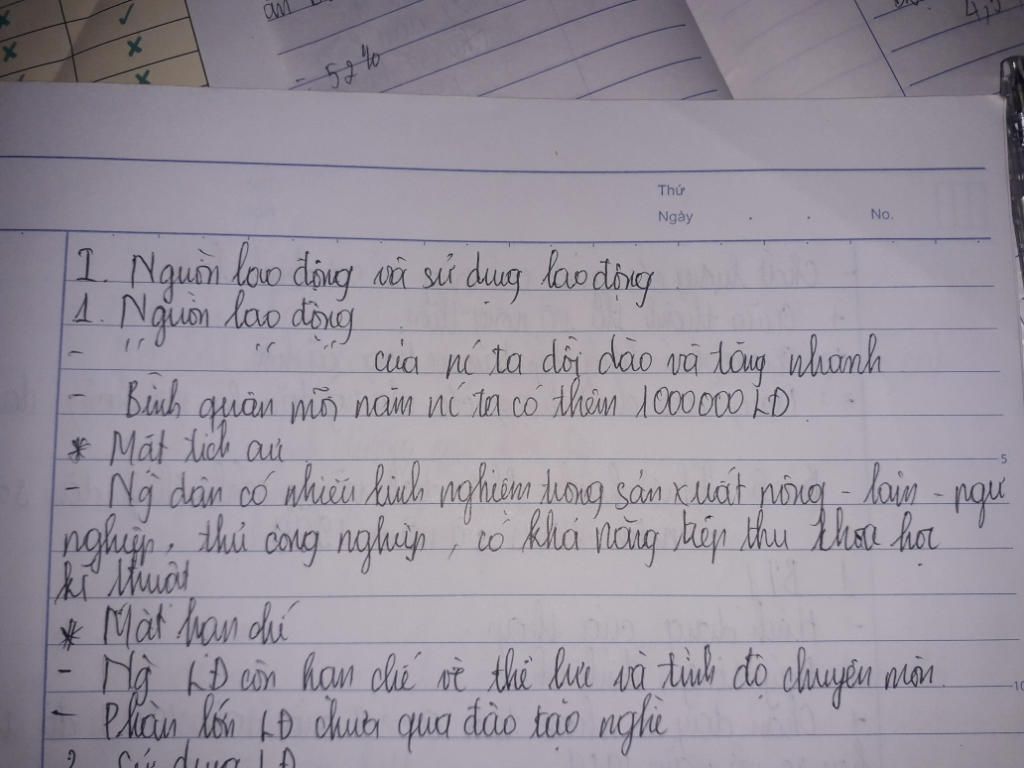 - 52%
4,5
Thứ
Ngày . . No.
I. Nguồn lao động và sử dụng lao động
1. Nguồn lao động
- " " " của nć ta dồi dào và tăng nhanh
- Bình quân mỗi năm nć ta có thêm 1000000 LĐ
* Mặt tích cực
5
- Ng dân có nhiều kinh nghiệm trong sản xuất nông - lâm - ngư
nghiệp, thủ công nghiệp, có khả năng tiếp thu khoa học
kĩ thuật
* Mặt hạn chế
- Ng LĐ còn hạn chế về thể lực và trình độ chuyên môn
10
- Phần lớn LĐ chưa qua đào tạo nghề
2. Sử dụng LĐ